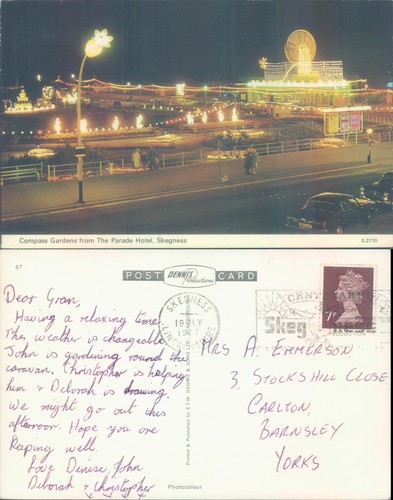 Compass Gardens from The Parade Hotel, Skegness
S.2170
67
POST DENNIS Productions CARD
Dear Gran,
Having a relaxing time.
The weather is changeable
John is gardening round the
caravan. Christopher is helping
him & Deborah is drawing.
We might go out this
afternoon. Hope you are
keeping well.
Love Denise, John
Deborah & Christopher
Printed & Published by E.T.W. DENNIS &
Photocolour
SKEGNESS
19 JLY
Skeg
7P
MRS A. EMMERSON
3, STOCKS HILL CLOSE
CARLTON,
BARNSLEY
YORKS